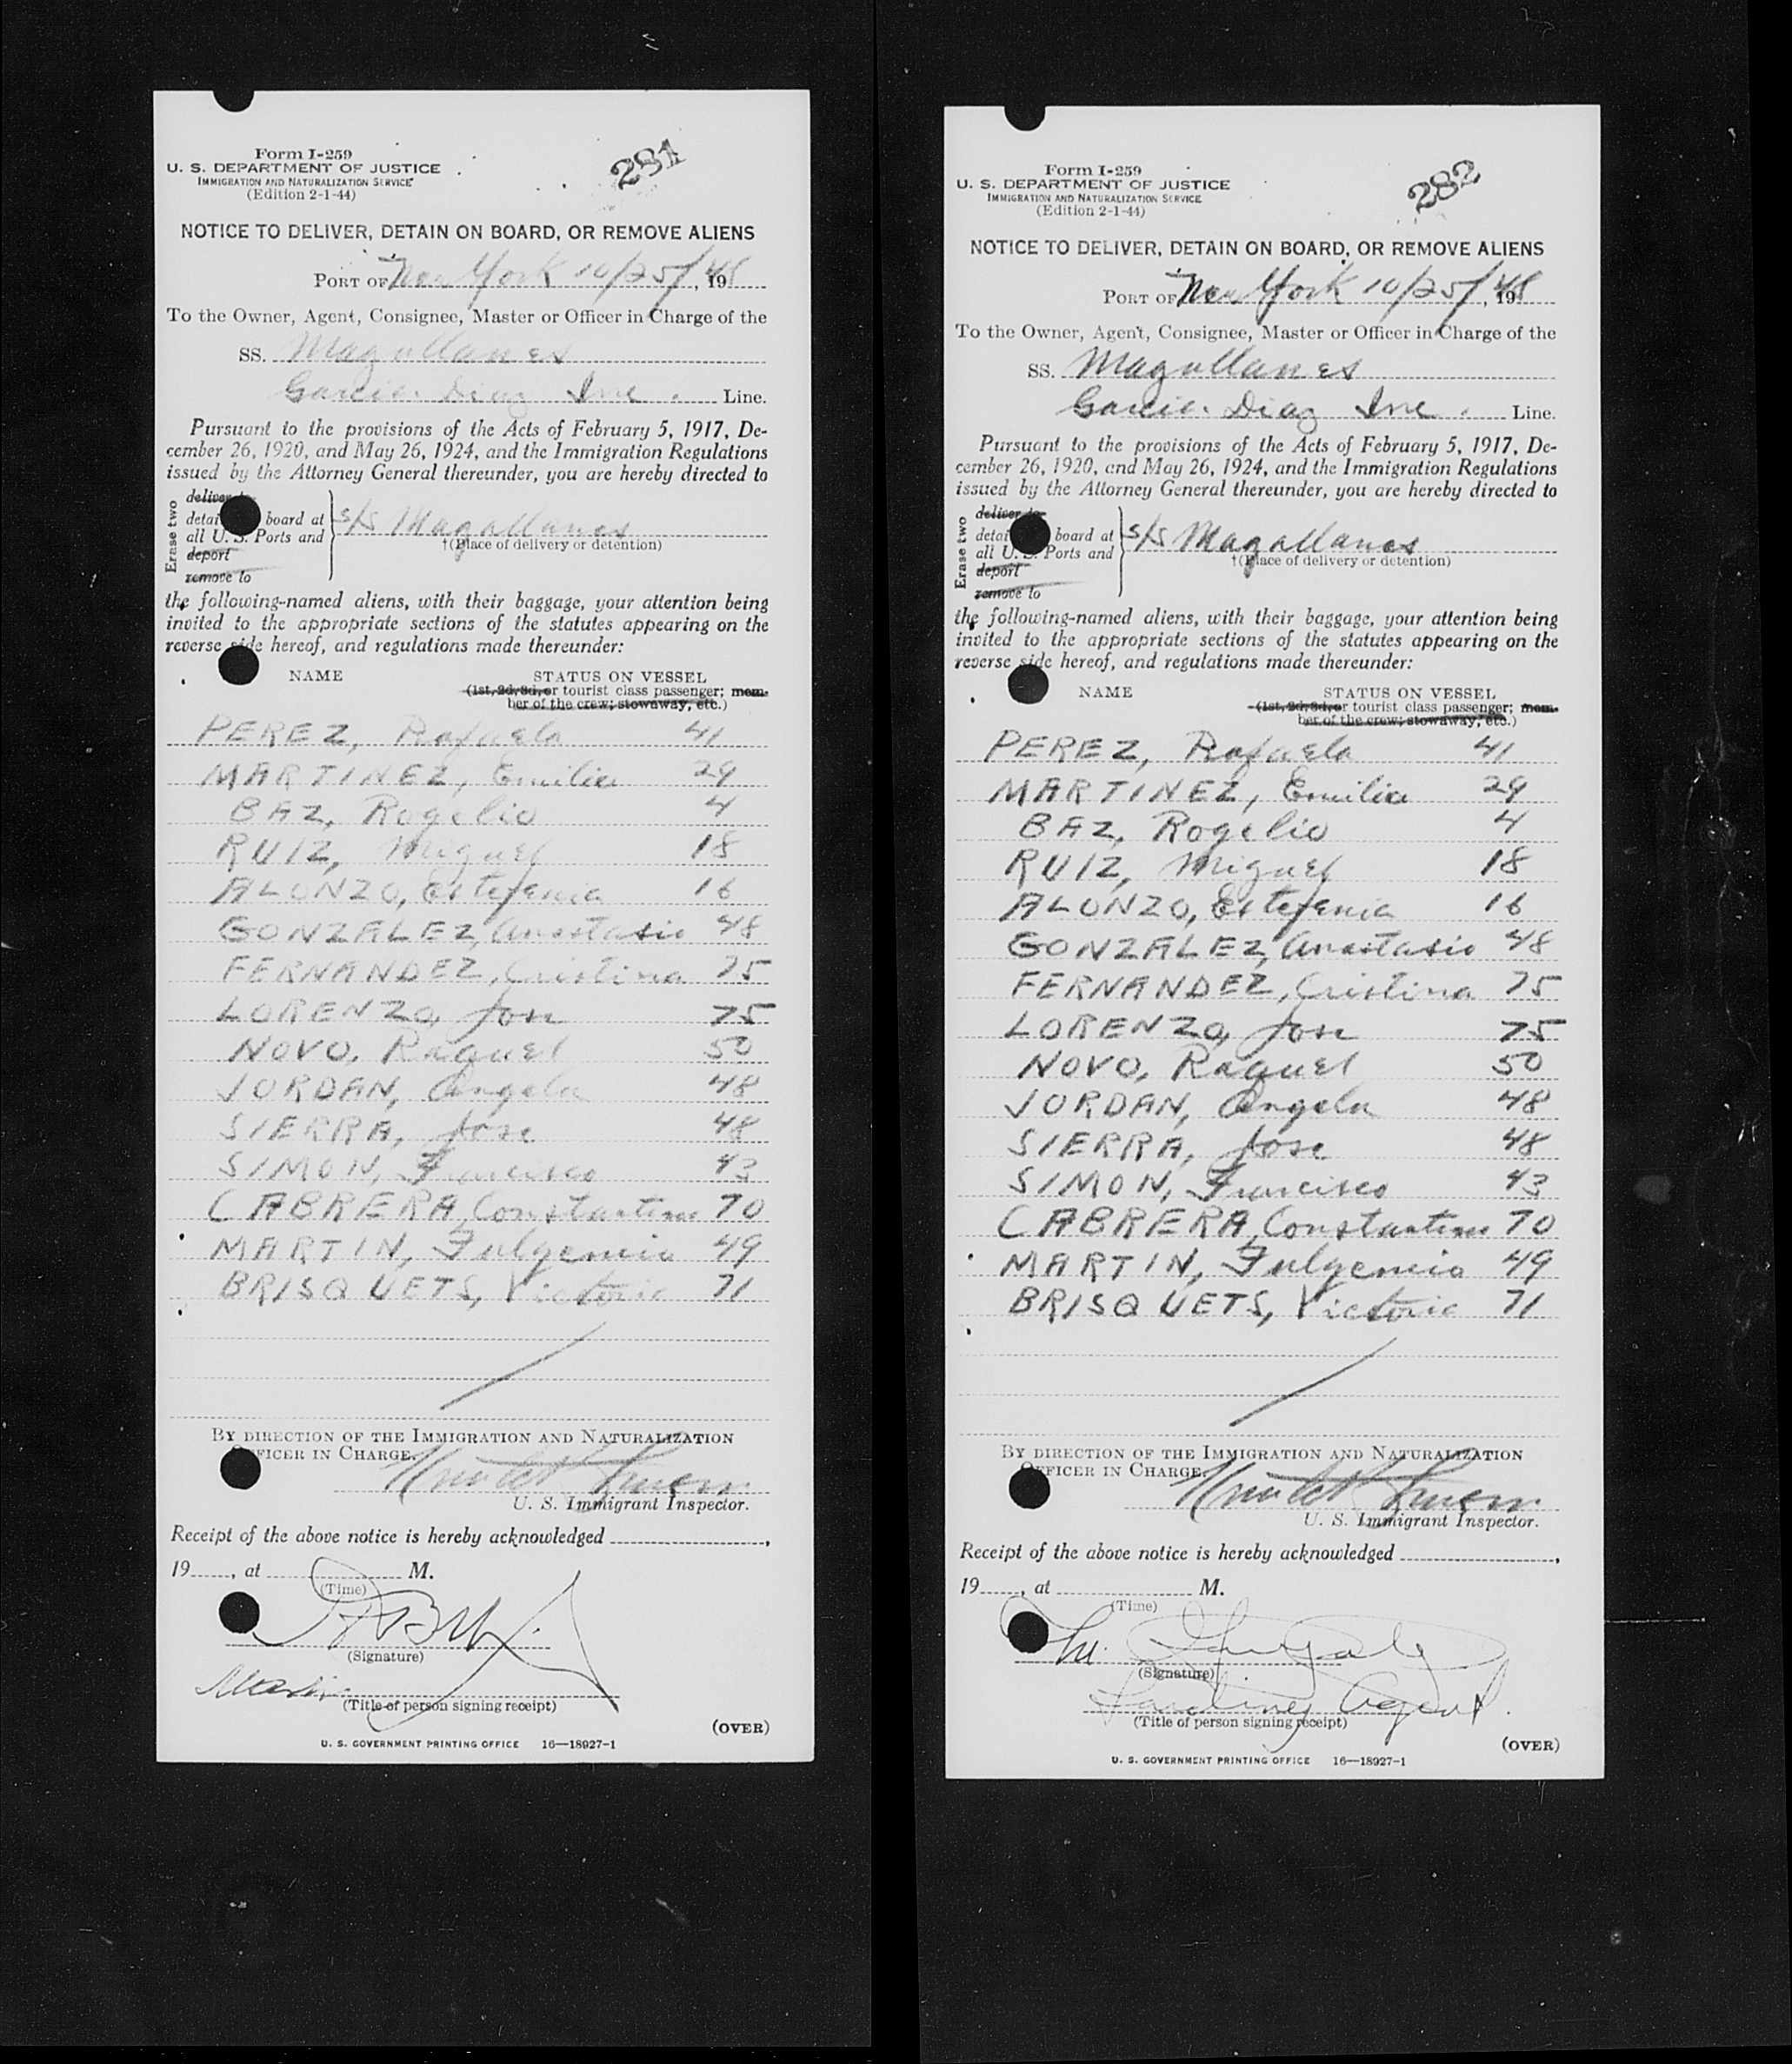 281
Form I-259
U. S. DEPARTMENT OF JUSTICE
IMMIGRATION AND NATURALIZATION SERVICE
(Edition 2-1-44)
NOTICE TO DELIVER, DETAIN ON BOARD, OR REMOVE ALIENS
PORT OF New York 10/25/, 1948
To the Owner, Agent, Consignee, Master or Officer in Charge of the
SS. Magallanes
Garcia Diaz Inc. Line.
Pursuant to the provisions of the Acts of February 5, 1917, De-
cember 26, 1920, and May 26, 1924, and the Immigration Regulations
issued by the Attorney General thereunder, you are hereby directed to
Erase two
deliver to
detai board at s/s Magallanes
all U. S. Ports and †(Place of delivery or detention)
deport
remove to
the following-named aliens, with their baggage, your attention being
invited to the appropriate sections of the statutes appearing on the
reverse side hereof, and regulations made thereunder:
NAME STATUS ON VESSEL
(1st, 2d, 3d, or tourist class passenger; mem-
ber of the crew; stowaway, etc.)
PEREZ, Rafaela 41
MARTINEZ, Emilia 29
BAZ, Rogelio 4
RUIZ, Miguel 18
ALONZO, Estefenia 16
GONZALEZ, Anastasio 48
FERNANDEZ, Cristina 75
LORENZO, Jose 75
NOVO, Raquel 50
JORDAN, Angela 48
SIERRA, Jose 48
SIMON, Francisco 43
CABRERA, Constantino 70
MARTIN, Fulgencio 49
BRISQUETS, Victoria 71
BY DIRECTION OF THE IMMIGRATION AND NATURALIZATION
OFFICER IN CHARGE.
U. S. Immigrant Inspector.
Receipt of the above notice is hereby acknowledged ,
19 , at M.
(Time)
(Signature)
(Title of person signing receipt)
(OVER)
U. S. GOVERNMENT PRINTING OFFICE 16—18927-1
282
Form I-259
U. S. DEPARTMENT OF JUSTICE
IMMIGRATION AND NATURALIZATION SERVICE
(Edition 2-1-44)
NOTICE TO DELIVER, DETAIN ON BOARD, OR REMOVE ALIENS
PORT OF New York 10/25/, 1948
To the Owner, Agent, Consignee, Master or Officer in Charge of the
SS. Magallanes
Garcia Diaz Inc. Line.
Pursuant to the provisions of the Acts of February 5, 1917, De-
cember 26, 1920, and May 26, 1924, and the Immigration Regulations
issued by the Attorney General thereunder, you are hereby directed to
Erase two
deliver to
detai board at s/s Magallanes
all U. S. Ports and †(Place of delivery or detention)
deport
remove to
the following-named aliens, with their baggage, your attention being
invited to the appropriate sections of the statutes appearing on the
reverse side hereof, and regulations made thereunder:
NAME STATUS ON VESSEL
(1st, 2d, 3d, or tourist class passenger; mem-
ber of the crew; stowaway, etc.)
PEREZ, Rafaela 41
MARTINEZ, Emilia 29
BAZ, Rogelio 4
RUIZ, Miguel 18
ALONZO, Estefenia 16
GONZALEZ, Anastasio 48
FERNANDEZ, Cristina 75
LORENZO, Jose 75
NOVO, Raquel 50
JORDAN, Angela 48
SIERRA, Jose 48
SIMON, Francisco 43
CABRERA, Constantino 70
MARTIN, Fulgencio 49
BRISQUETS, Victoria 71
BY DIRECTION OF THE IMMIGRATION AND NATURALIZATION
OFFICER IN CHARGE.
U. S. Immigrant Inspector.
Receipt of the above notice is hereby acknowledged ,
19 , at M.
(Time)
(Signature)
Landing Agent.
(Title of person signing receipt)
(OVER)
U. S. GOVERNMENT PRINTING OFFICE 16—18927-1